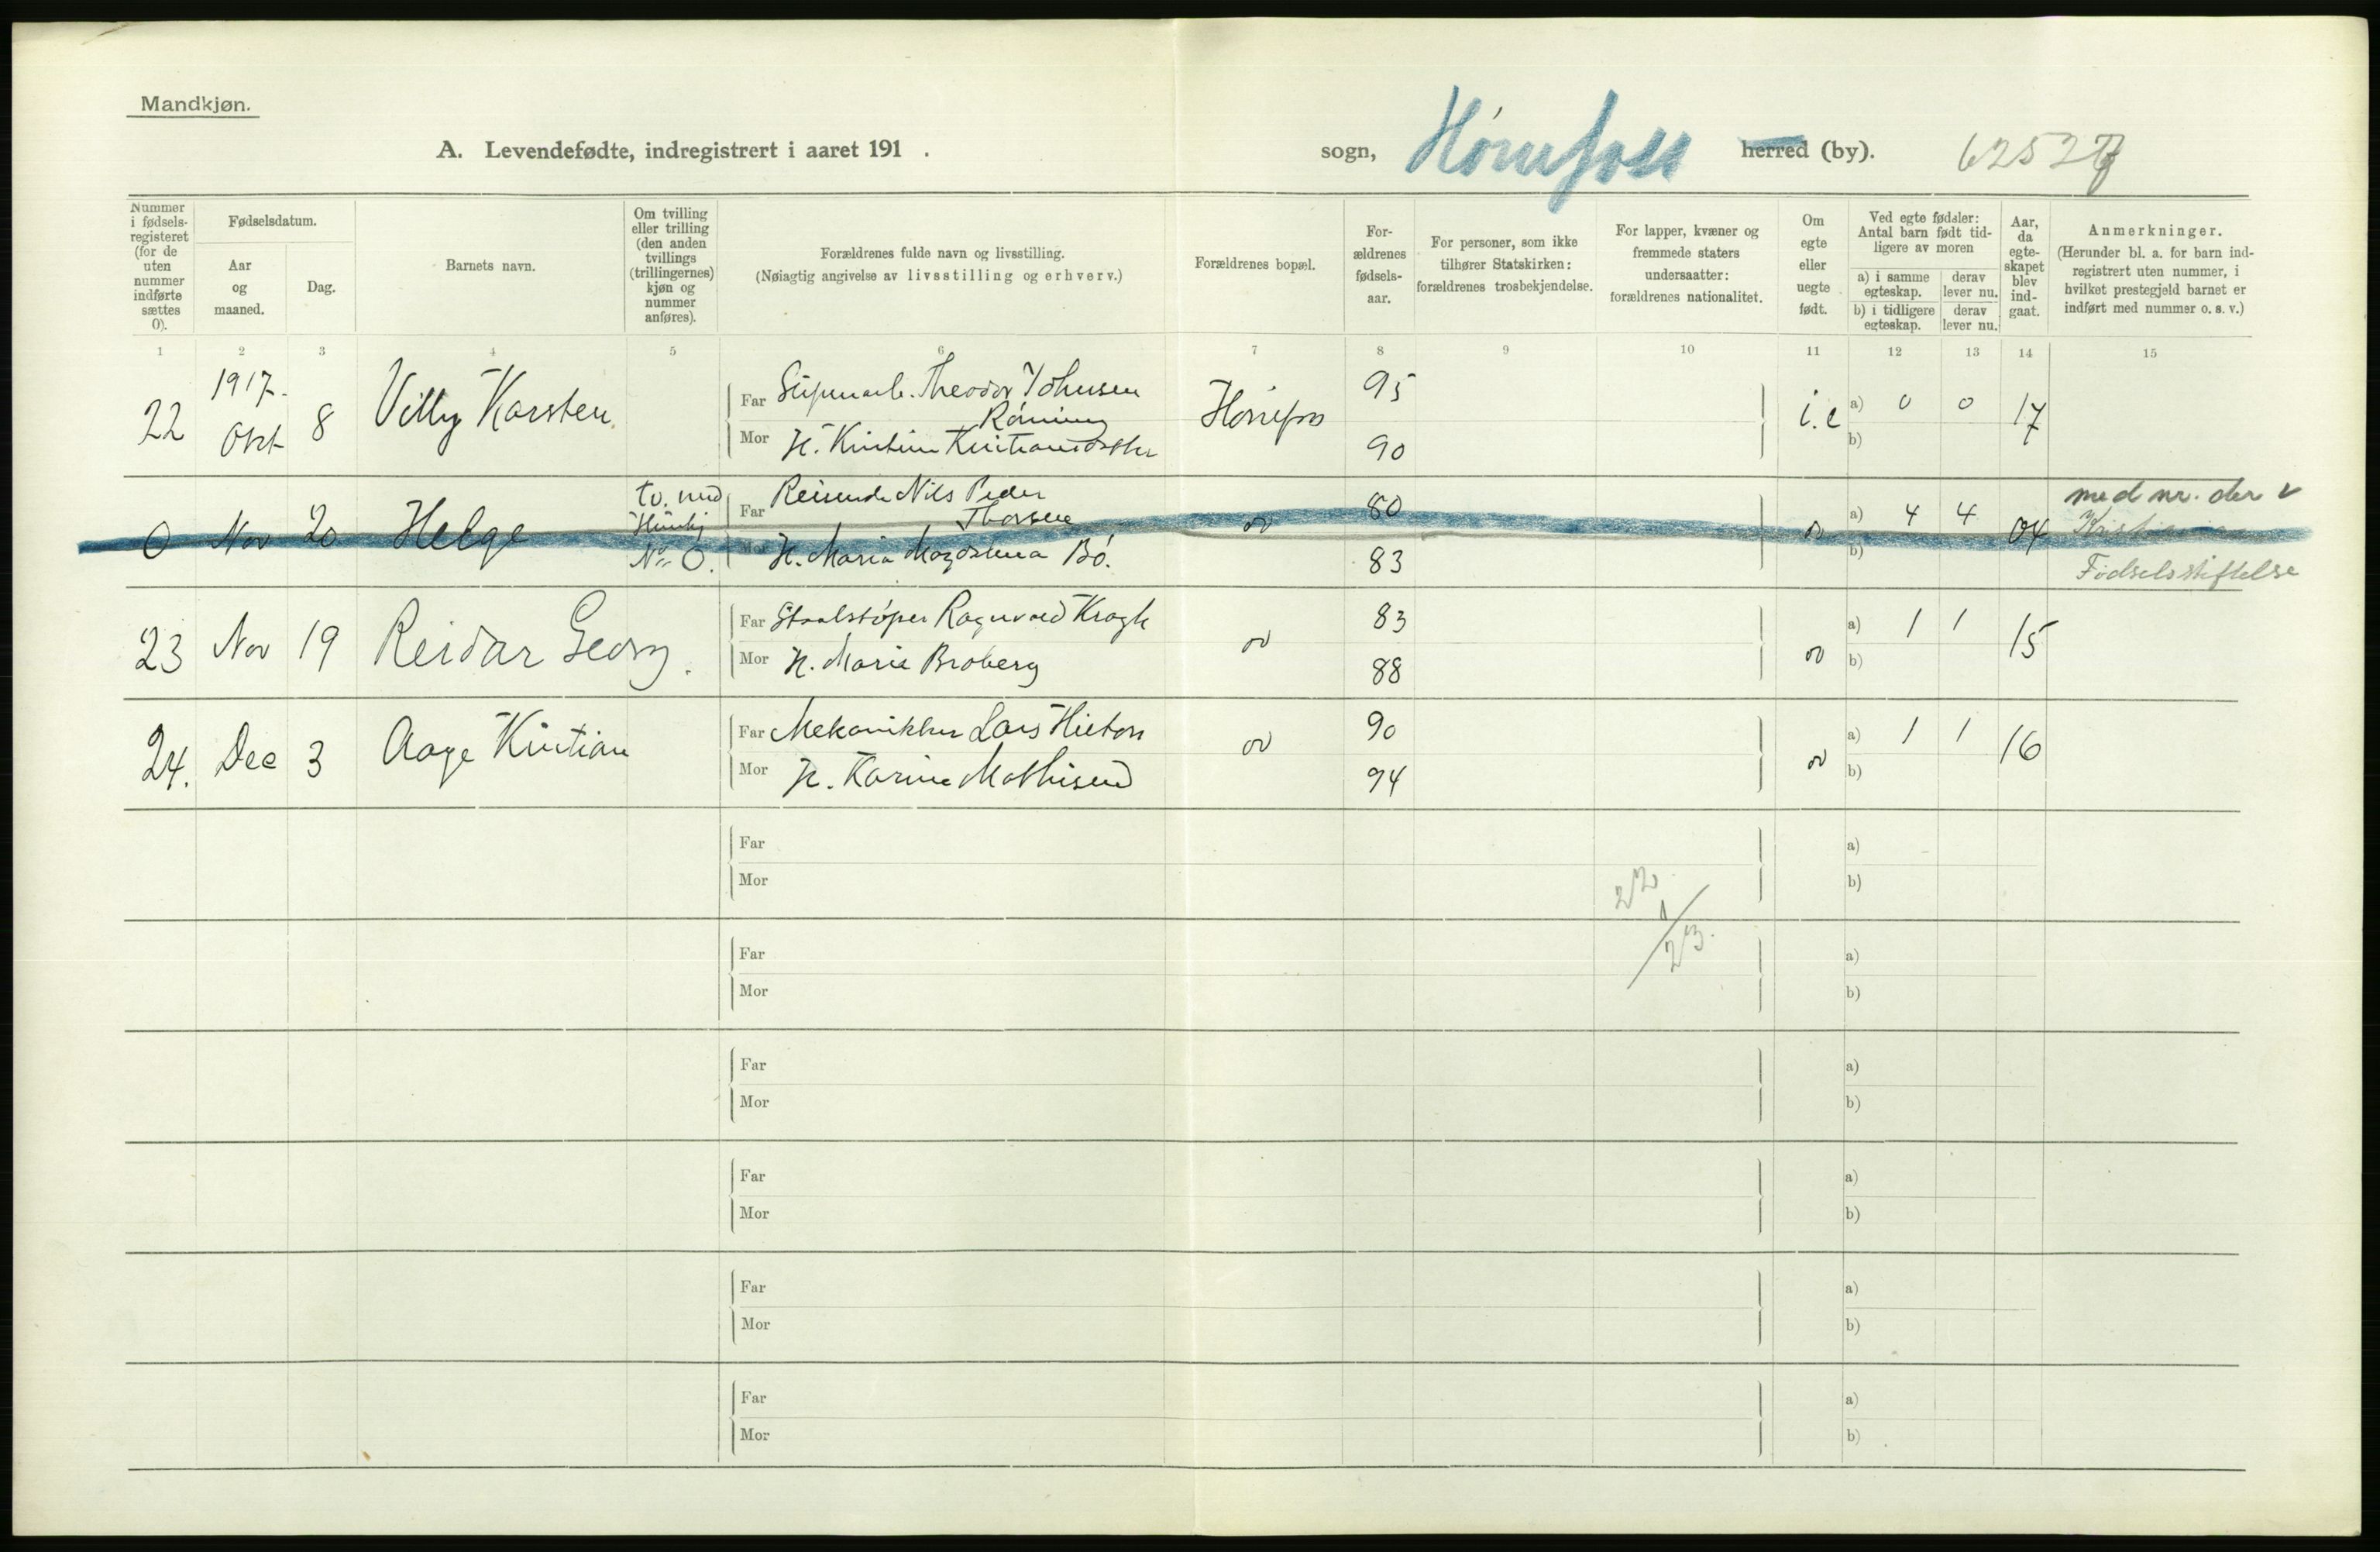 Mandkjøn.
A. Levendefødte, indregistrert i aaret 191 .
sogn, Hønefoss herred (by). 62527
Nummer i fødsels-registeret (for de uten nummer indførte sættes 0).
Fødselsdatum.
Aar og maaned.
Dag.
Barnets navn.
Om tvilling eller trilling (den anden tvillings (trillingernes) kjøn og nummer anføres).
Forældrenes fulde navn og livsstilling.
(Nøiagtig angivelse av livsstilling og erhverv.)
Forældrenes bopæl.
For-ældrenes fødsels-aar.
For personer, som ikke tilhører Statskirken: forældrenes trosbekjendelse.
For lapper, kvæner og fremmede staters undersaatter: forældrenes nationalitet.
Om egte eller uegte født.
Ved egte fødsler: Antal barn født tid-ligere av moren
a) i samme egteskap.
derav lever nu.
b) i tidligere egteskap.
derav lever nu.
Aar, da egte-skapet blev ind-gaat.
Anmerkninger.
(Herunder bl. a. for barn ind-registrert uten nummer, i hvilket prestegjeld barnet er indført med nummer o. s. v.)
1 2 3 4 5 6 7 8 9 10 11 12 13 14 15
22 1917. Okt 8 Villy Karsten.
Far Sliperiarb. Theodor Johnsen Røning
Mor H. Kristine Kristiansdatter
Hønefos 95 90 i.e a) 0 0 b) 17
0 Nov 20 Helge tv. med No 0.
Far Reisende Nils Peder Thorsen
Mor H. Maria Magdalena Bø.
do 80 83 do a) 4 4 b) 04
med nr. der v Kristiania Fødselsstiftelse
23 Nov 19 Reidar Georg.
Far Staalstøper Ragnvald Kragh
Mor H. Marie Broberg
do 83 88 do a) 1 1 b) 15
24. Dec 3 Aage Kristian
Far Mekanikker Lars Hieton
Mor H. Karine Mathisen
do 90 94 do a) 1 1 b) 16
Far a)
Mor b)
22
1
23.
Far a)
Mor b)
Far a)
Mor b)
Far a)
Mor b)
Far a)
Mor b)
Far a)
Mor b)